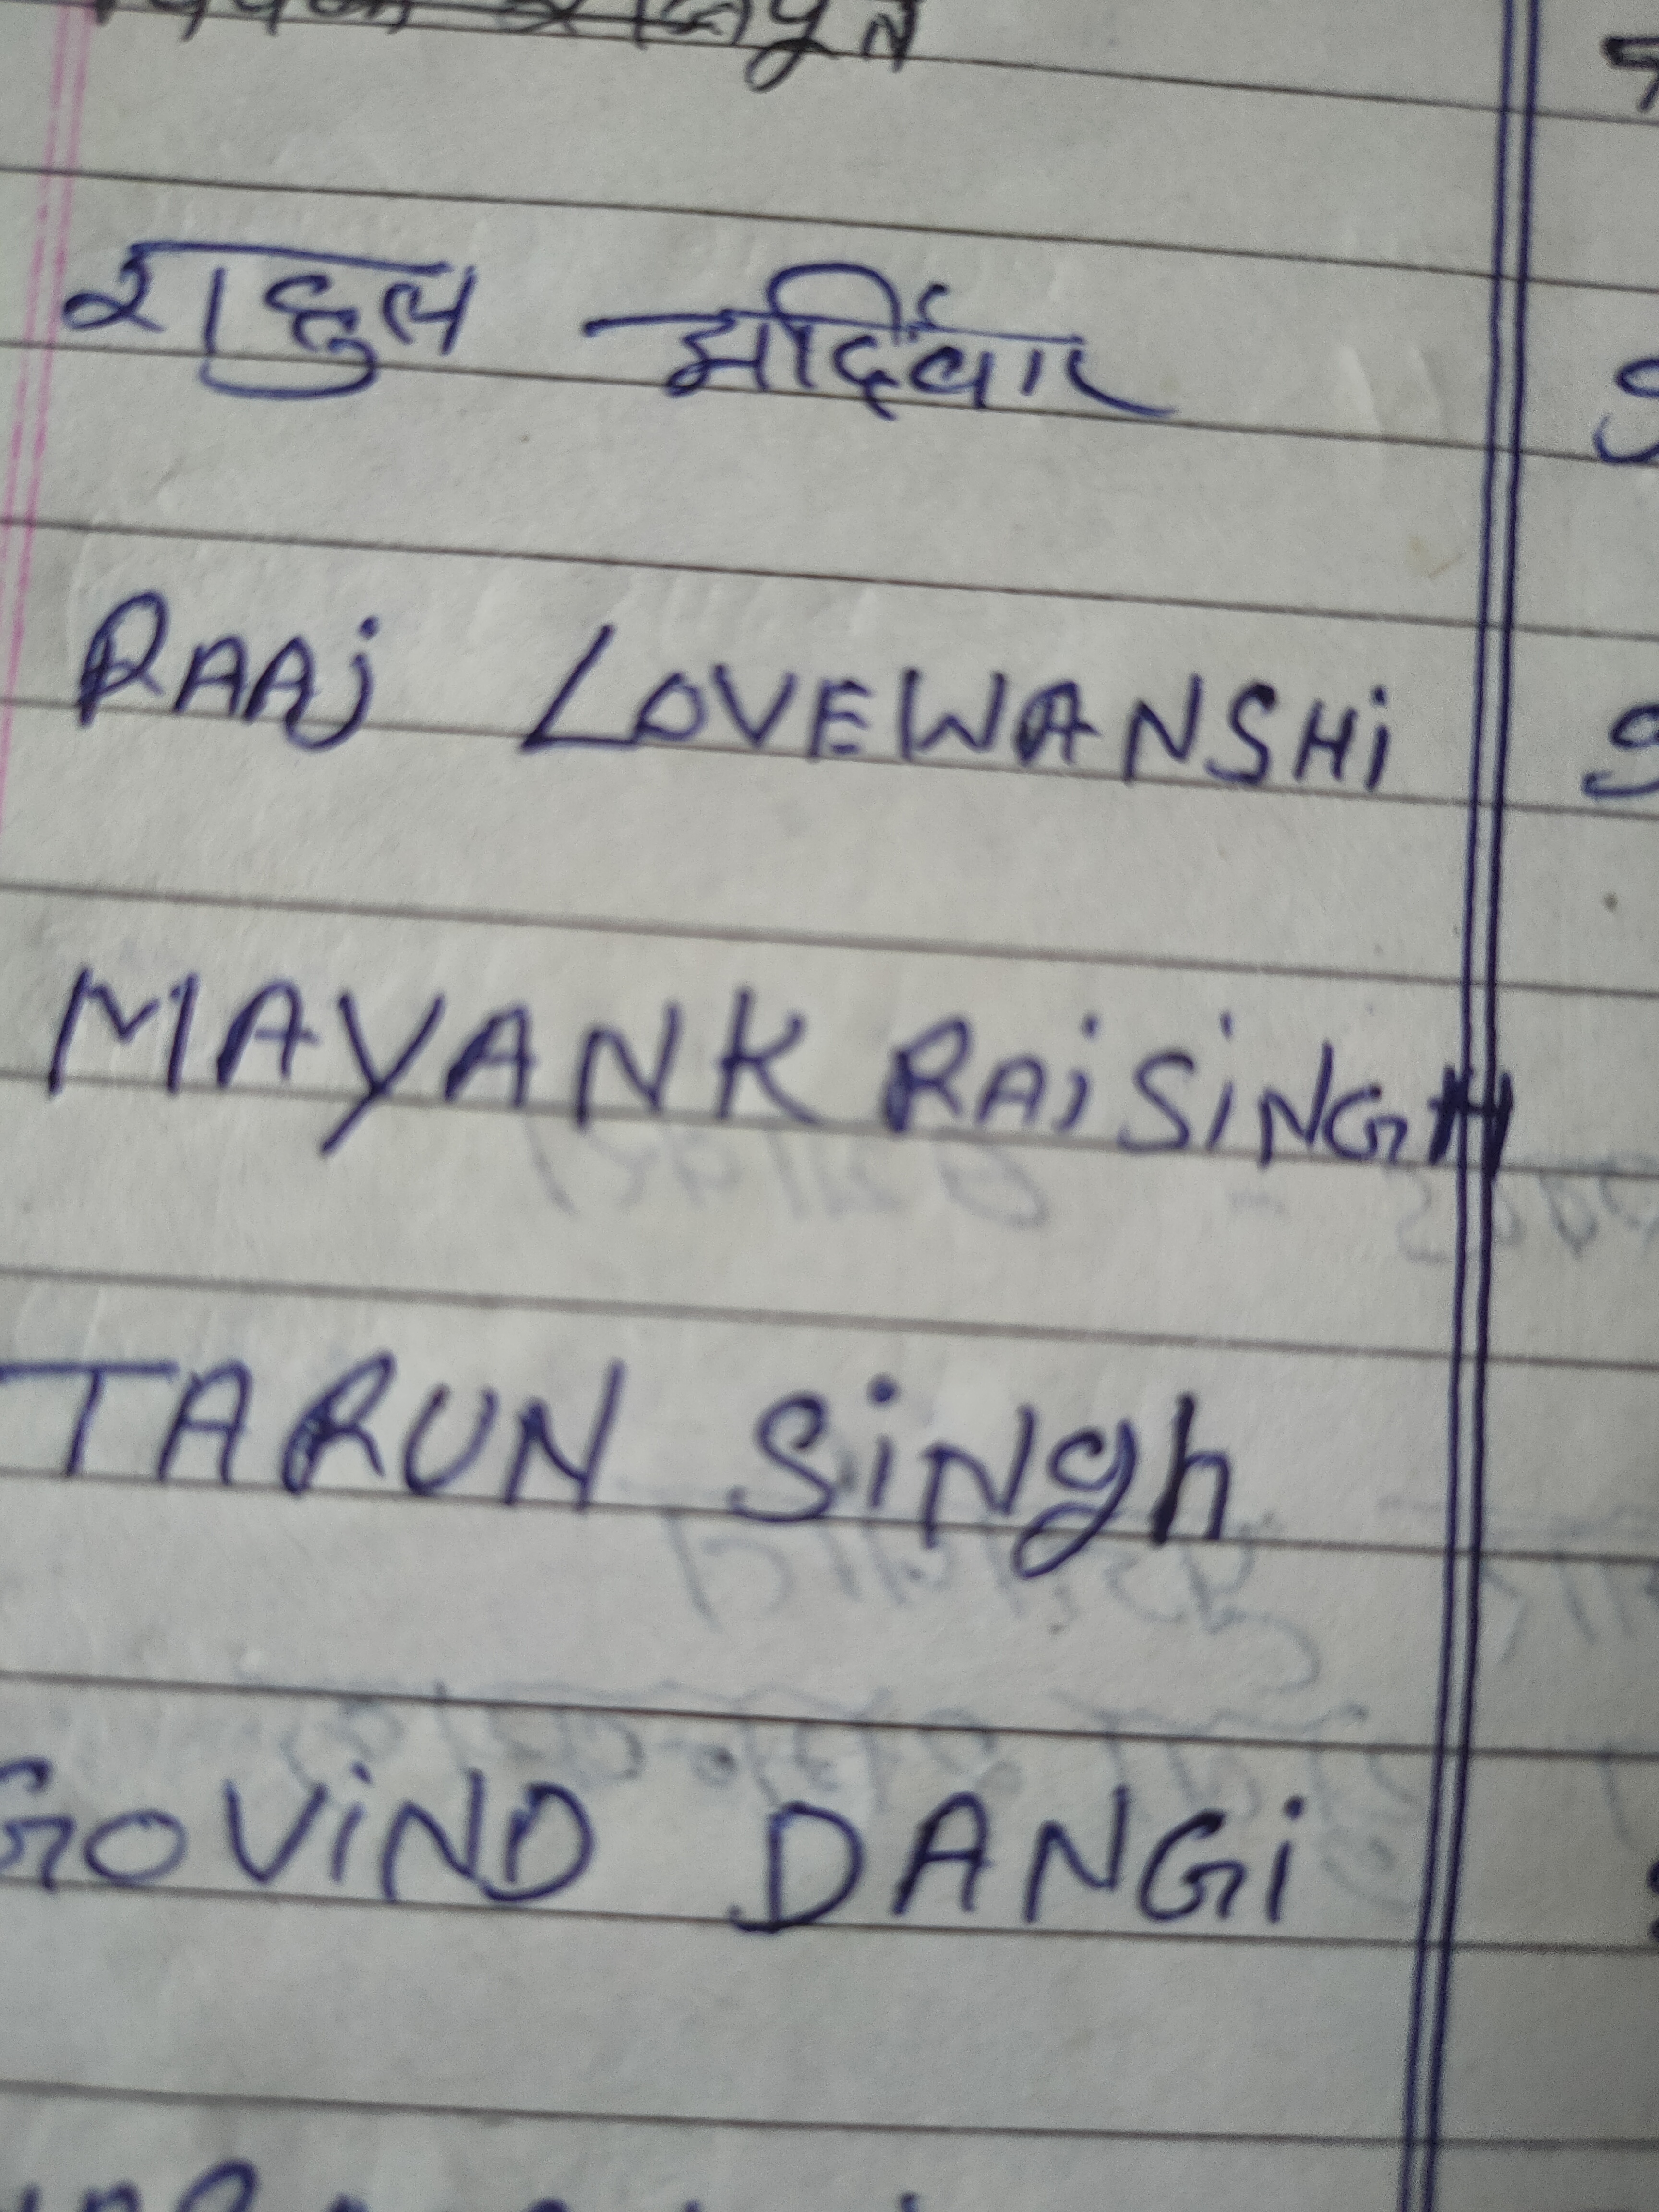 राहुल
RAAj LOVEWANSHi
MAYANK RAiSiNGH
TARUN SiNgh
GOViND DANGi